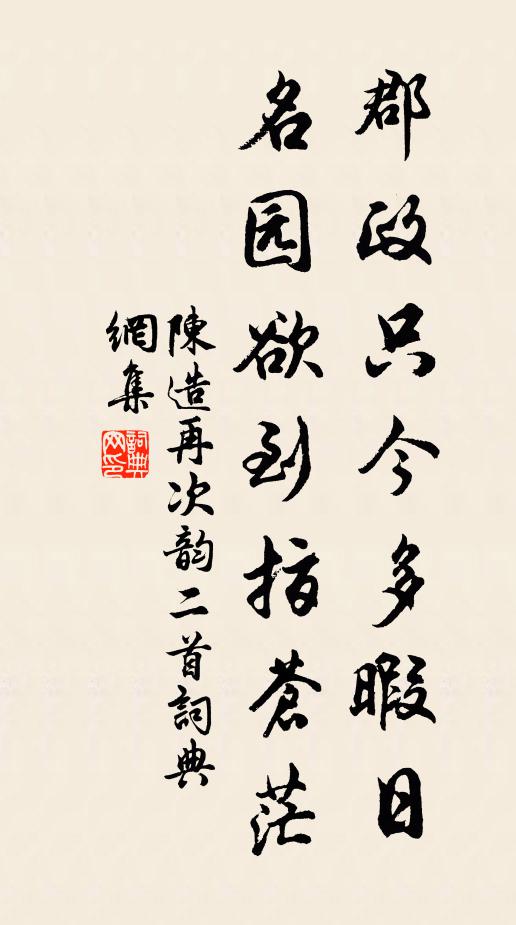 郡政只今多暇日
名园欲到指苍茫
陳造再次韵二首詞典
網集
詞典網印